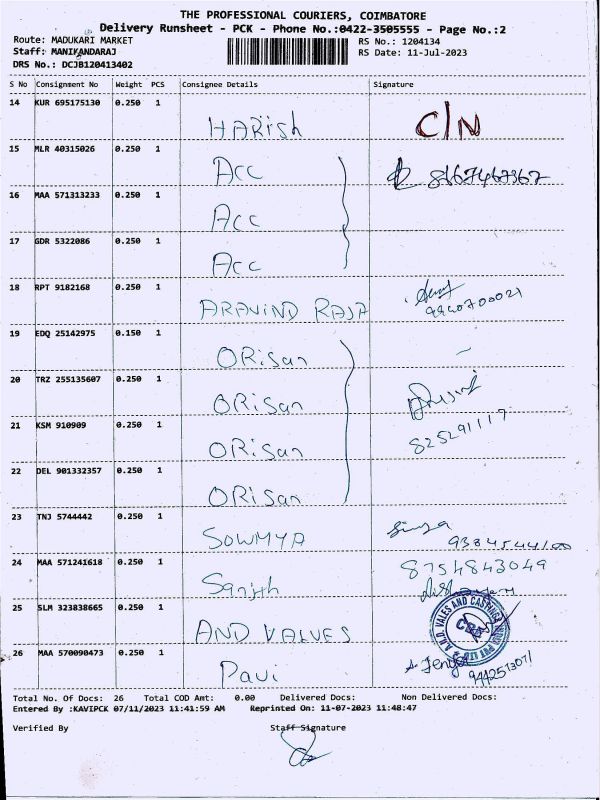 THE PROFESSIONAL COURIERS, COIMBATORE
Delivery Runsheet - PCK - Phone No.:0422-3505555 - Page No.:2
Route: MADUKARI MARKET RS No.: 1204134
Staff: MANIKANDARAJ RS Date: 11-Jul-2023
DRS No.: DCJB120413402
S No Consignment No Weight PCS Consignee Details Signature
14 KUR 695175130 0.250 1 HARISH C/N
15 MLR 40315026 0.250 1 ACC 8167467367
16 MAA 571313233 0.250 1 ACC
17 GDR 5322086 0.250 1 ACC
18 RPT 9182168 0.250 1 ARAVIND RAJA 9940700021
19 EDQ 25142975 0.150 1 ORiSan
20 TRZ 255135607 0.250 1 ORiSan
21 KSM 910909 0.250 1 ORiSan 825291117
22 DEL 901332357 0.250 1 ORiSan
23 TNJ 5744442 0.250 1 SOWMYA 9384544100
24 MAA 571241618 0.250 1 Sanjth 8754843049
25 SLM 323838665 0.250 1 AND VALVES
A.N.D. VALES AND CASTINGS PVT LTD
CBE
26 MAA 570090473 0.250 1 Pavi 9442513071
Total No. Of Docs: 26 Total COD Amt: 0.00 Delivered Docs: Non Delivered Docs:
Entered By :KAVIPCK 07/11/2023 11:41:59 AM Reprinted On: 11-07-2023 11:48:47
Verified By Staff Signature